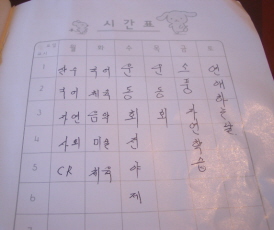 시간표
월 화 수 목 금 토
1 산수 국어 운 운 소 연
2 국어 체육 동 동 풍 애
3 자연 음악 회 회 자 하
4 사회 미술 전 연 는
5 CA 체육 야 학 날
6 제 습